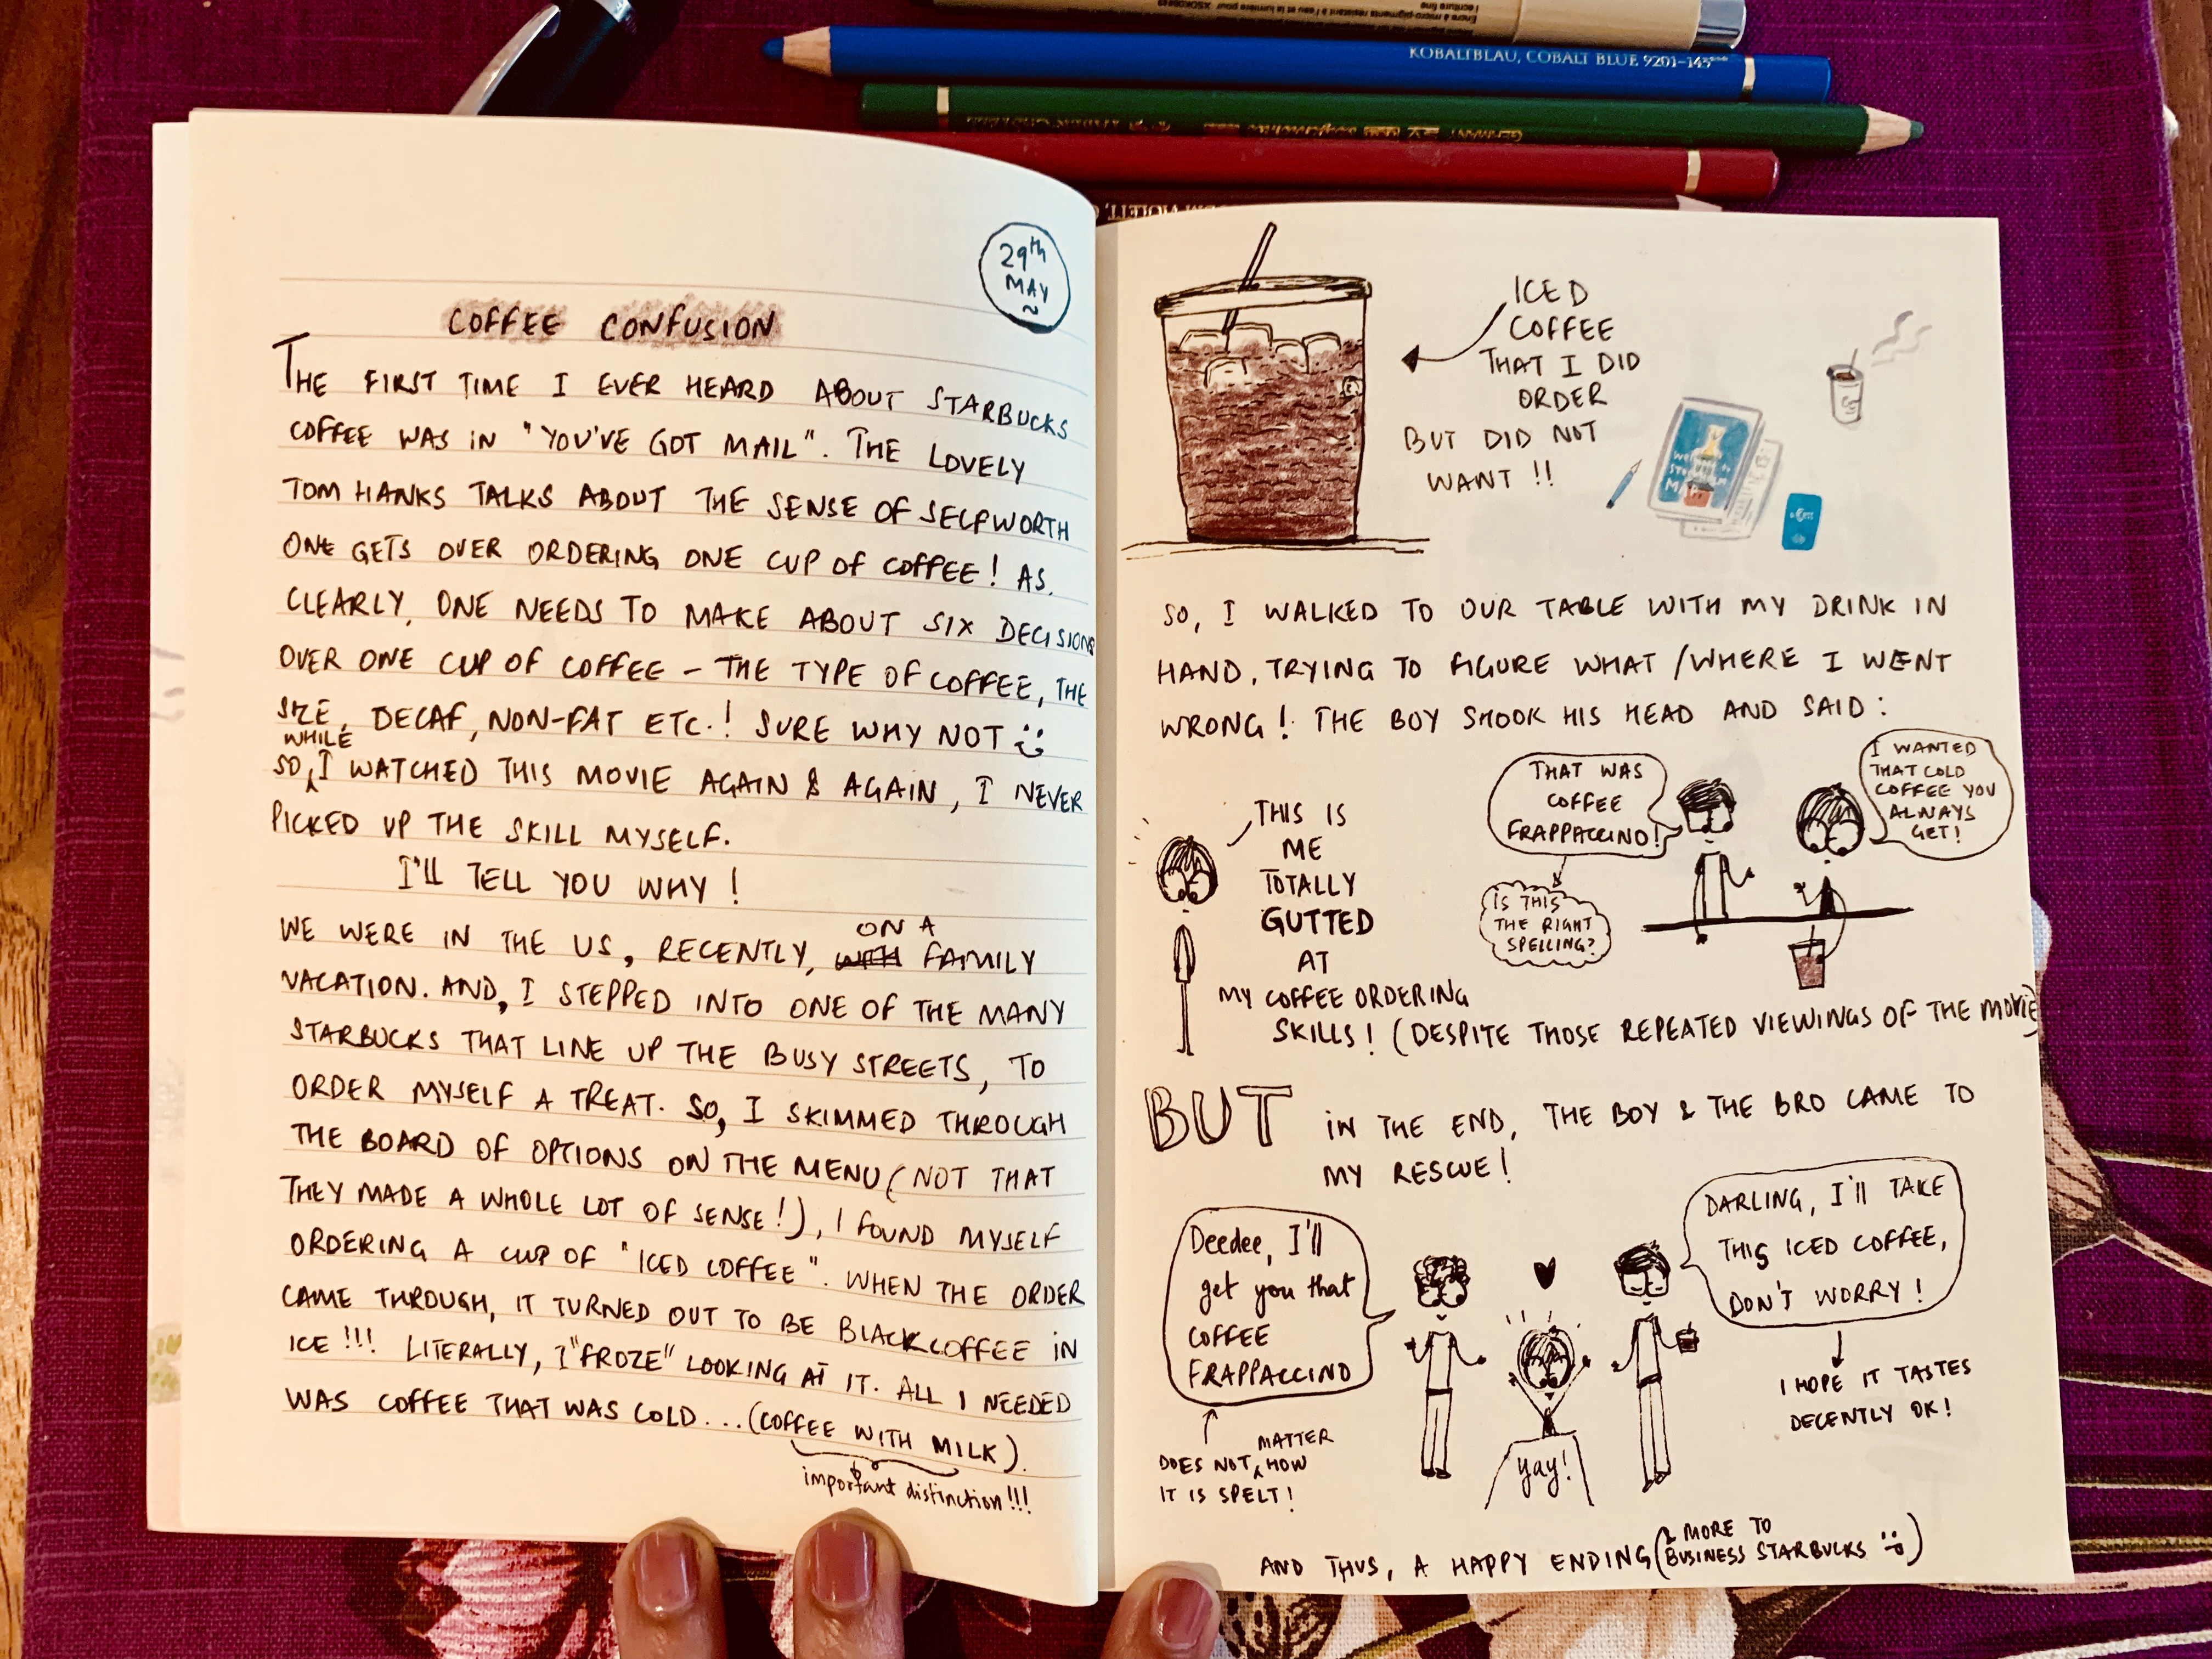 KOBALTBLAU, COBALT BLUE 9201-143***
29th
MAY
COFFEE CONFUSION
THE FIRST TIME I EVER HEARD ABOUT STARBUCKS
COFFEE WAS IN "YOU'VE GOT MAIL". THE LOVELY
TOM HANKS TALKS ABOUT THE SENSE OF SELFWORTH
ONE GETS OVER ORDERING ONE CUP OF COFFEE! AS
CLEARLY, ONE NEEDS TO MAKE ABOUT SIX DECISIONS
OVER ONE CUP OF COFFEE - THE TYPE OF COFFEE, THE
SIZE, DECAF, NON-FAT ETC.! SURE WHY NOT
WHILE
SO, I WATCHED THIS MOVIE AGAIN & AGAIN, I NEVER
PICKED UP THE SKILL MYSELF.
I'll TELL YOU WHY!
ON A
WE WERE IN THE US, RECENTLY, WITH FAMILY
VACATION. AND, I STEPPED INTO ONE OF THE MANY
STARBUCKS THAT LINE UP THE BUSY STREETS, TO
ORDER MYSELF A TREAT. SO, I SKIMMED THROUGH
THE BOARD OF OPTIONS ON THE MENU (NOT THAT
THEY MADE A WHOLE LOT OF SENSE!), I FOUND MYSELF
ORDERING A CUP OF "ICED COFFEE". WHEN THE ORDER
CAME THROUGH, IT TURNED OUT TO BE BLACK COFFEE IN
ICE!!! LITERALLY, I "FROZE" LOOKING AT IT. ALL I NEEDED
WAS COFFEE THAT WAS COLD... (COFFEE WITH MILK).
important distinction!!!
ICED
COFFEE
THAT I DID
ORDER
BUT DID NOT
WANT!!
SO, I WALKED TO OUR TABLE WITH MY DRINK IN
HAND, TRYING TO FIGURE WHAT/WHERE I WENT
WRONG! THE BOY SHOOK HIS HEAD AND SAID:
THAT WAS
COFFEE
FRAPPACCINO!
I WANTED
THAT COLD
COFFEE YOU
ALWAYS
GET!
IS THIS
THE RIGHT
SPELLING?
THIS IS
ME
TOTALLY
GUTTED
AT
MY COFFEE ORDERING
SKILLS! (DESPITE THOSE REPEATED VIEWINGS OF THE MOVIE)
BUT IN THE END, THE BOY & THE BRO CAME TO
MY RESCUE!
Deedee, I'll
get you that
COFFEE
FRAPPACCINO
DARLING, I'll TAKE
THIS ICED COFFEE,
DON'T WORRY!
MATTER
DOES NOT HOW
IT IS SPELT!
yay!
I HOPE IT TASTES
DECENTLY OK!
& MORE TO
AND THUS, A HAPPY ENDING (BUSINESS STARBUCKS)